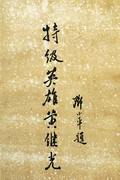 特级英雄黄继光
邓小平题